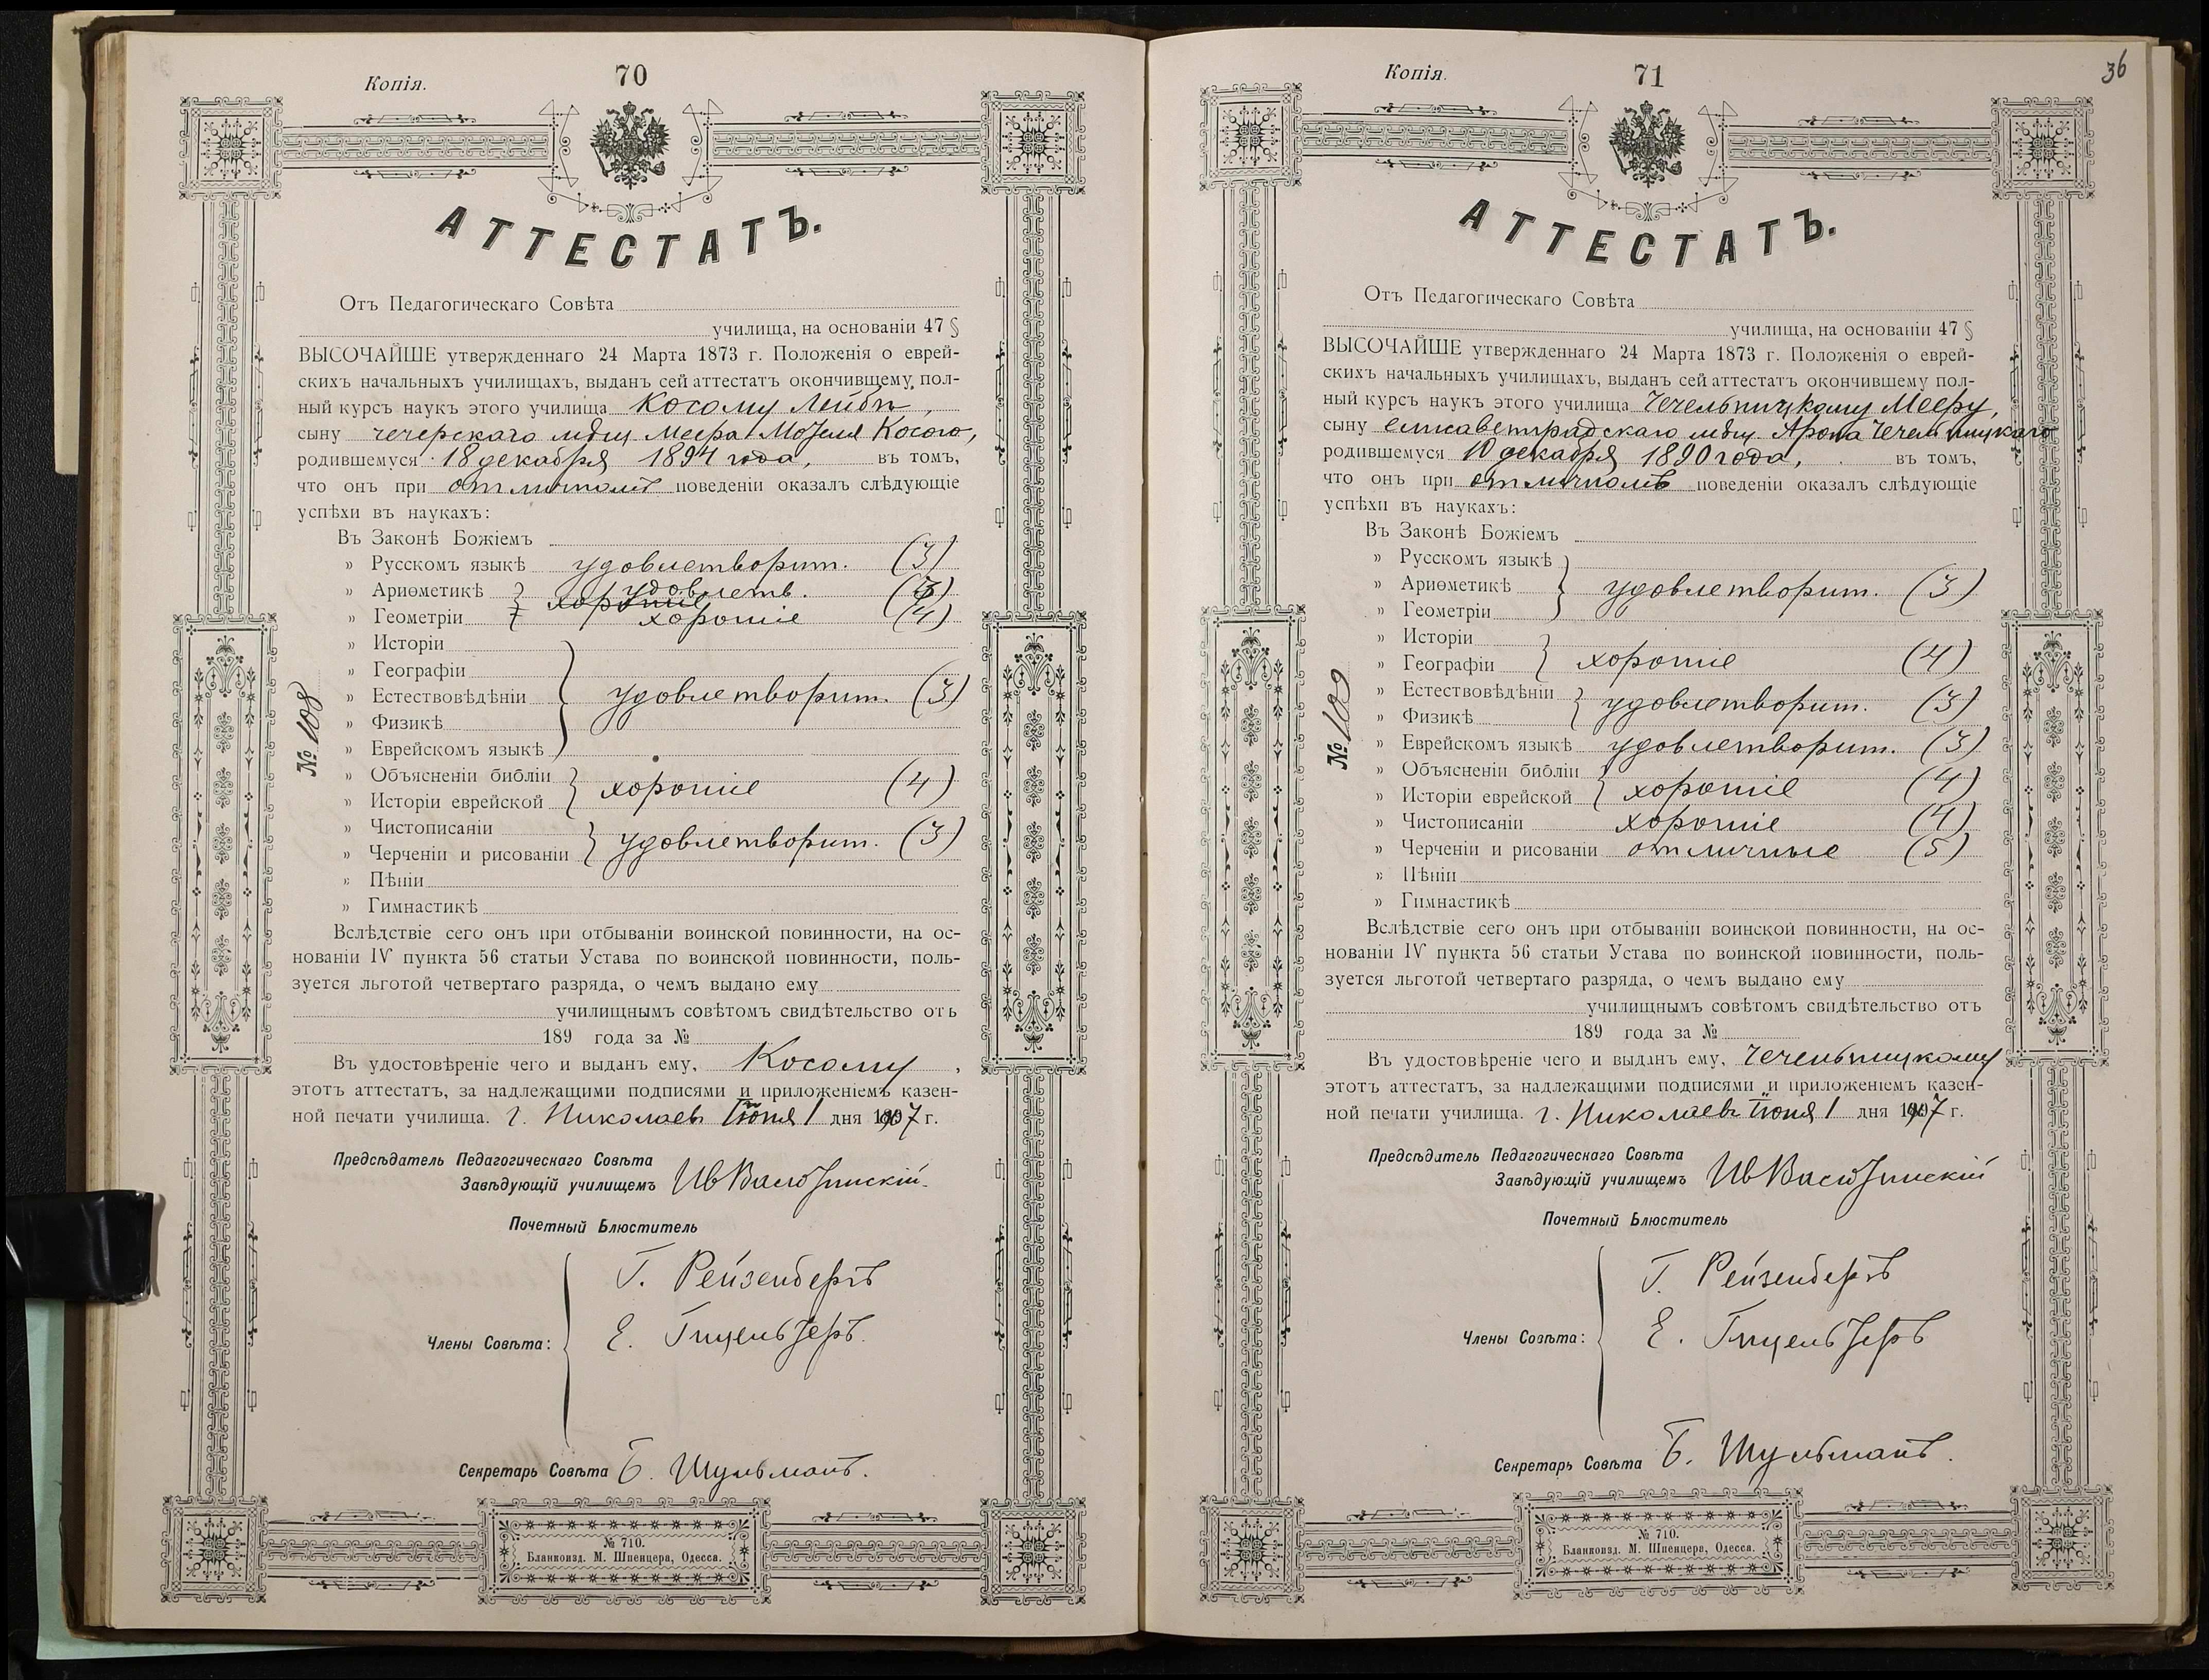 Копія.
70
АТТЕСТАТЪ.
Отъ Педагогическаго Совѣта
училища, на основаніи 47 §
ВЫСОЧАЙШЕ утвержденнаго 24 Марта 1873 г. Положенія о еврей-
скихъ начальныхъ училищахъ, выданъ сей аттестатъ окончившему пол-
ный курсъ наукъ этого училища Косому Лейбѣ,
сыну чечерскаго мѣщ. Меера Мозеля Косого,
родившемуся 18 декабря 1894 года, въ томъ,
что онъ при отличномъ поведеніи оказалъ слѣдующіе
успѣхи въ наукахъ:
Въ Законѣ Божіемъ
» Русскомъ языкѣ удовлетворит. (3)
» Ариѳметикѣ хорошіе удовлетв. (3)
» Геометріи хорошіе (4)
» Исторіи
» Географіи
» Естествовѣдѣніи удовлетворит. (3)
» Физикѣ
» Еврейскомъ языкѣ
» Объясненіи библіи хорошіе (4)
» Исторіи еврейской
» Чистописаніи удовлетворит. (3)
» Черченіи и рисованіи
» Пѣніи
» Гимнастикѣ
№ 108
Вслѣдствіе сего онъ при отбываніи воинской повинности, на ос-
нованіи IV пункта 56 статьи Устава по воинской повинности, поль-
зуется льготой четвертаго разряда, о чемъ выдано ему
училищнымъ совѣтомъ свидѣтельство отъ
189 года за №
Въ удостовѣреніе чего и выданъ ему, Косому,
этотъ аттестатъ, за надлежащими подписями и приложеніемъ казен-
ной печати училища. г. Николаевъ Іюня 1 дня 1907 г.
Предсѣдатель Педагогическаго Совѣта
Завѣдующій училищемъ Ив
Почетный Блюститель
Г. Рейзенбергъ
Члены Совѣта: Е. Гицельзеръ.
Секретарь Совѣта Б. Шульманъ.
№ 710.
Бланкоизд. М. Шпенцера, Одесса.
Копія.
71
36
АТТЕСТАТЪ.
Отъ Педагогическаго Совѣта
училища, на основаніи 47 §
ВЫСОЧАЙШЕ утвержденнаго 24 Марта 1873 г. Положенія о еврей-
скихъ начальныхъ училищахъ, выданъ сей аттестатъ окончившему пол-
ный курсъ наукъ этого училища Чечельницкому Мееру,
сыну елисаветградскаго мѣщ. Арона Чечельницкаго
родившемуся 10 декабря 1890 года, въ томъ,
что онъ при отличномъ поведеніи оказалъ слѣдующіе
успѣхи въ наукахъ:
Въ Законѣ Божіемъ
» Русскомъ языкѣ
» Ариѳметикѣ удовлетворит. (3)
» Геометріи
» Исторіи
» Географіи хорошіе (4)
» Естествовѣдѣніи удовлетворит. (3)
» Физикѣ
» Еврейскомъ языкѣ удовлетворит. (3)
» Объясненіи библіи
» Исторіи еврейской хорошіе (4)
» Чистописаніи хорошіе (4)
» Черченіи и рисованіи отличные (5)
» Пѣніи
» Гимнастикѣ
№ 109
Вслѣдствіе сего онъ при отбываніи воинской повинности, на ос-
нованіи IV пункта 56 статьи Устава по воинской повинности, поль-
зуется льготой четвертаго разряда, о чемъ выдано ему
училищнымъ совѣтомъ свидѣтельство отъ
189 года за №
Въ удостовѣреніе чего и выданъ ему, Чечельницкому
этотъ аттестатъ, за надлежащими подписями и приложеніемъ казен-
ной печати училища. г. Николаевъ Іюня 1 дня 1907 г.
Предсѣдатель Педагогическаго Совѣта
Завѣдующій училищемъ Ив
Почетный Блюститель
Г. Рейзенбергъ
Члены Совѣта: Е. Гицельзеръ
Секретарь Совѣта Б. Шульманъ.
№ 710.
Бланкоизд. М. Шпенцера, Одесса.